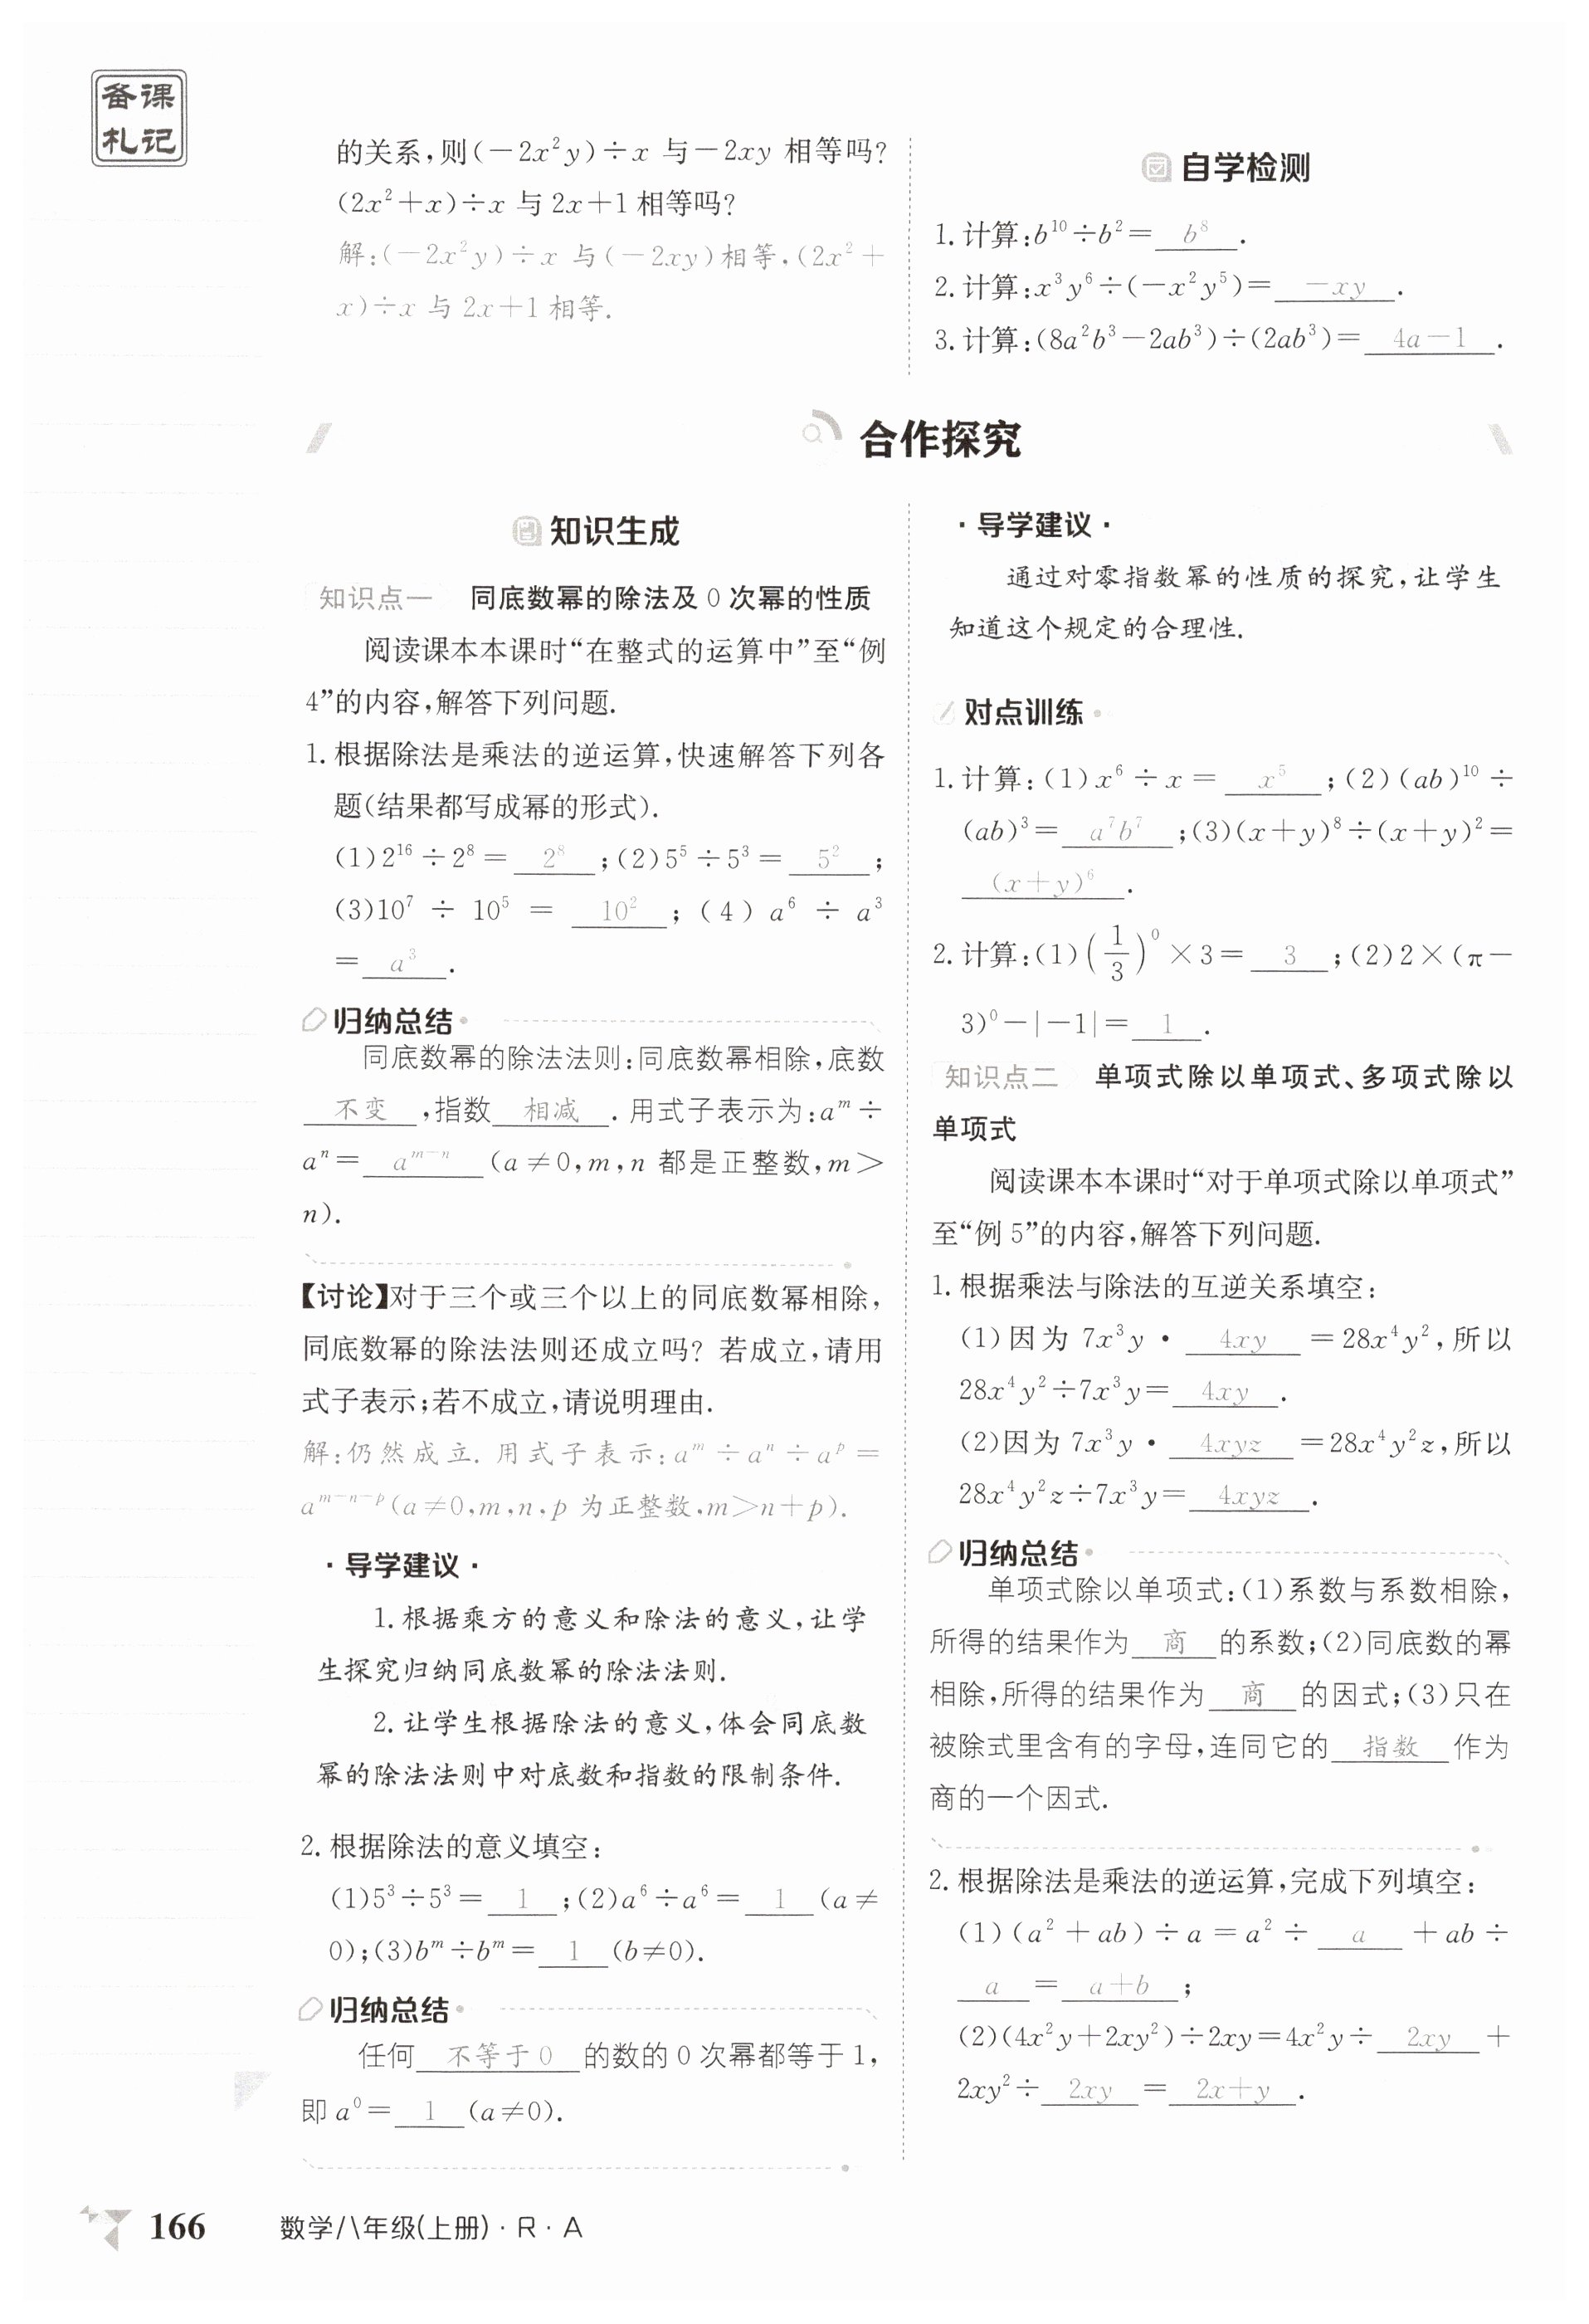 备课
札记
的关系,则(-2x²y)÷x 与-2xy 相等吗?
(2x²+x)÷x 与 2x+1 相等吗?
解:(-2x²y)÷x 与(-2xy)相等,(2x²+
x)÷x 与 2x+1 相等.
自学检测
1.计算:b¹⁰÷b²= b⁸ .
2.计算:x³y⁶÷(-x²y⁵)= -xy .
3.计算:(8a²b³-2ab³)÷(2ab³)= 4a-1 .
合作探究
知识生成
知识点一 同底数幂的除法及 0 次幂的性质
阅读课本本课时“在整式的运算中”至“例
4”的内容,解答下列问题.
1.根据除法是乘法的逆运算,快速解答下列各
题(结果都写成幂的形式).
(1)2¹⁶÷2⁸= 2⁸ ;(2)5⁵÷5³= 5² ;
(3)10⁷÷10⁵= 10² ;(4)a⁶÷a³
= a³ .
归纳总结
同底数幂的除法法则:同底数幂相除,底数
不变 ,指数 相减 .用式子表示为:aᵐ÷
aⁿ= aᵐ⁻ⁿ (a≠0,m,n 都是正整数,m>
n).
【讨论】对于三个或三个以上的同底数幂相除,
同底数幂的除法法则还成立吗?若成立,请用
式子表示;若不成立,请说明理由.
解:仍然成立.用式子表示:aᵐ÷aⁿ÷aᵖ=
aᵐ⁻ⁿ⁻ᵖ(a≠0,m,n,p 为正整数,m>n+p).
·导学建议·
1.根据乘方的意义和除法的意义,让学
生探究归纳同底数幂的除法法则.
2.让学生根据除法的意义,体会同底数
幂的除法法则中对底数和指数的限制条件.
2.根据除法的意义填空:
(1)5³÷5³= 1 ;(2)a⁶÷a⁶= 1 (a≠
0);(3)bᵐ÷bᵐ= 1 (b≠0).
归纳总结
任何 不等于 0 的数的 0 次幂都等于 1,
即 a⁰= 1 (a≠0).
·导学建议·
通过对零指数幂的性质的探究,让学生
知道这个规定的合理性.
对点训练
1.计算:(1)x⁶÷x= x⁵ ;(2)(ab)¹⁰÷
(ab)³= a⁷b⁷ ;(3)(x+y)⁸÷(x+y)²=
(x+y)⁶ .
2.计算:(1)(1/3)⁰×3= 3 ;(2)2×(π-
3)⁰-|-1|= 1 .
知识点二 单项式除以单项式、多项式除以
单项式
阅读课本本课时“对于单项式除以单项式”
至“例 5”的内容,解答下列问题.
1.根据乘法与除法的互逆关系填空:
(1)因为 7x³y· 4xy =28x⁴y²,所以
28x⁴y²÷7x³y= 4xy .
(2)因为 7x³y· 4xyz =28x⁴y²z,所以
28x⁴y²z÷7x³y= 4xyz .
归纳总结
单项式除以单项式:(1)系数与系数相除,
所得的结果作为 商 的系数;(2)同底数的幂
相除,所得的结果作为 商 的因式;(3)只在
被除式里含有的字母,连同它的 指数 作为
商的一个因式.
2.根据除法是乘法的逆运算,完成下列填空:
(1)(a²+ab)÷a=a²÷ a +ab÷
a = a+b ;
(2)(4x²y+2xy²)÷2xy=4x²y÷ 2xy +
2xy²÷ 2xy = 2x+y .
166 数学/八年级(上册)·R·A